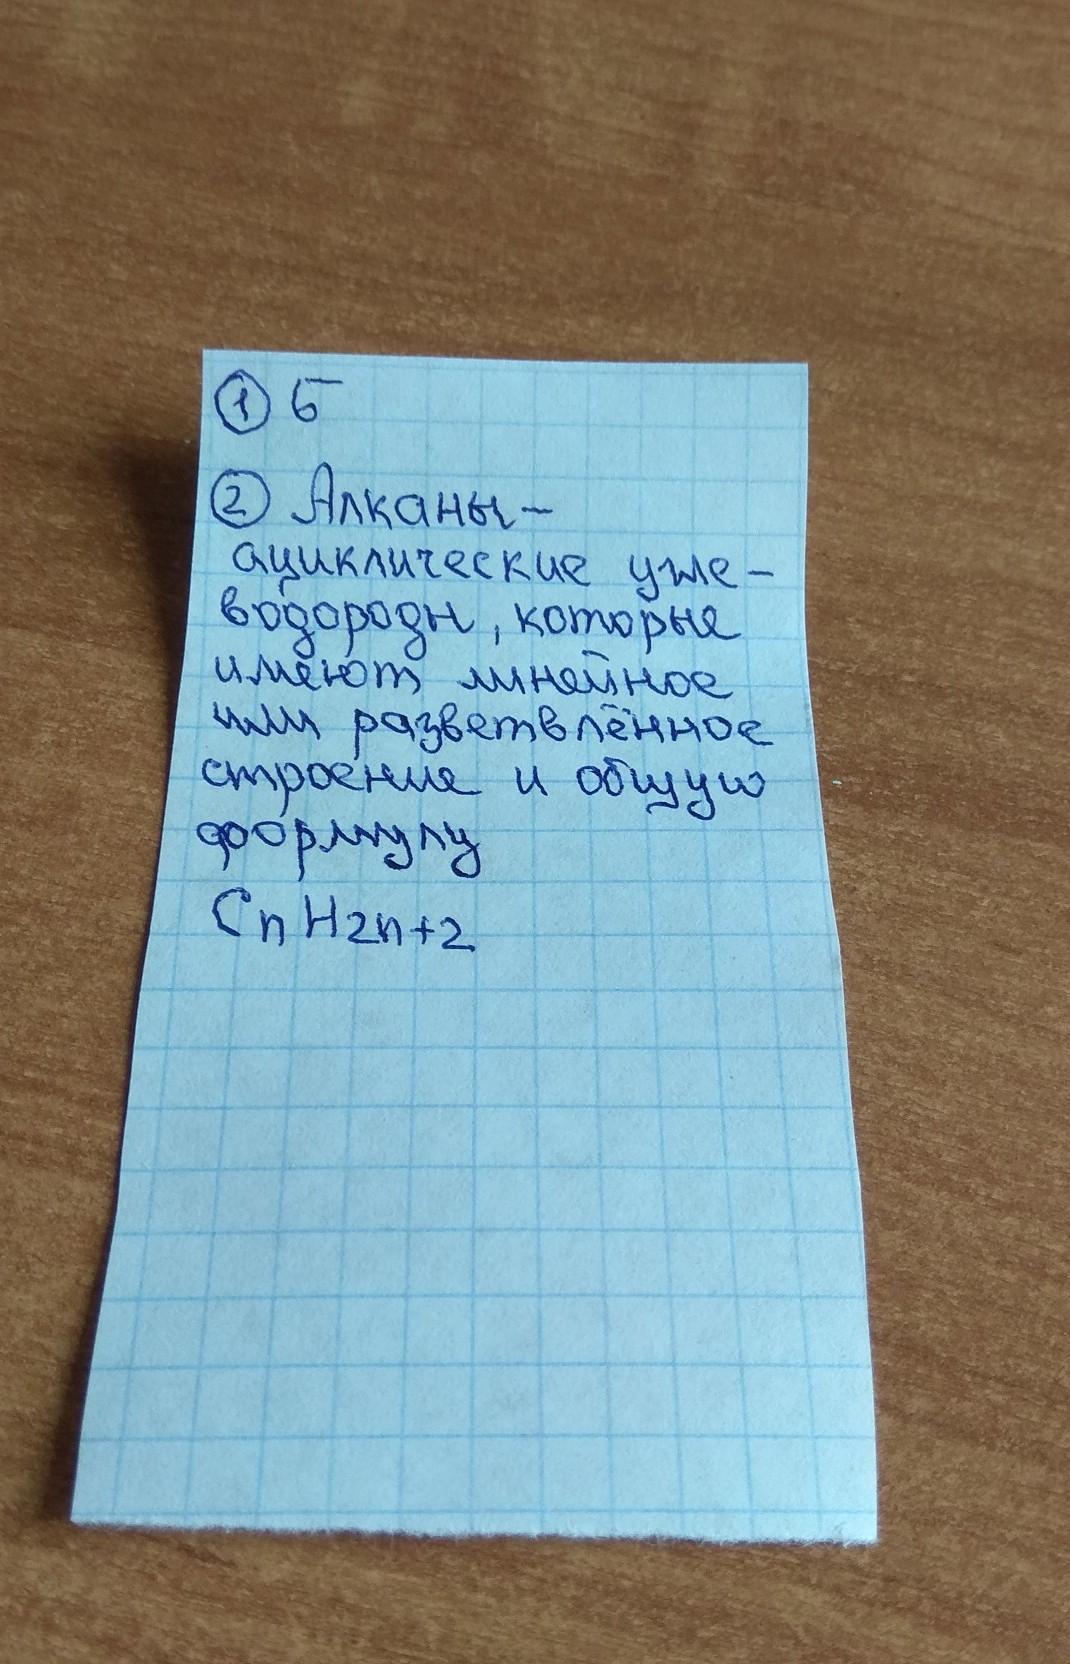 ① Б
② Алканы-
ациклические угле-
водороды, которые
имеют линейное
или разветвлённое
строение и общую
формулу
CnH2n+2